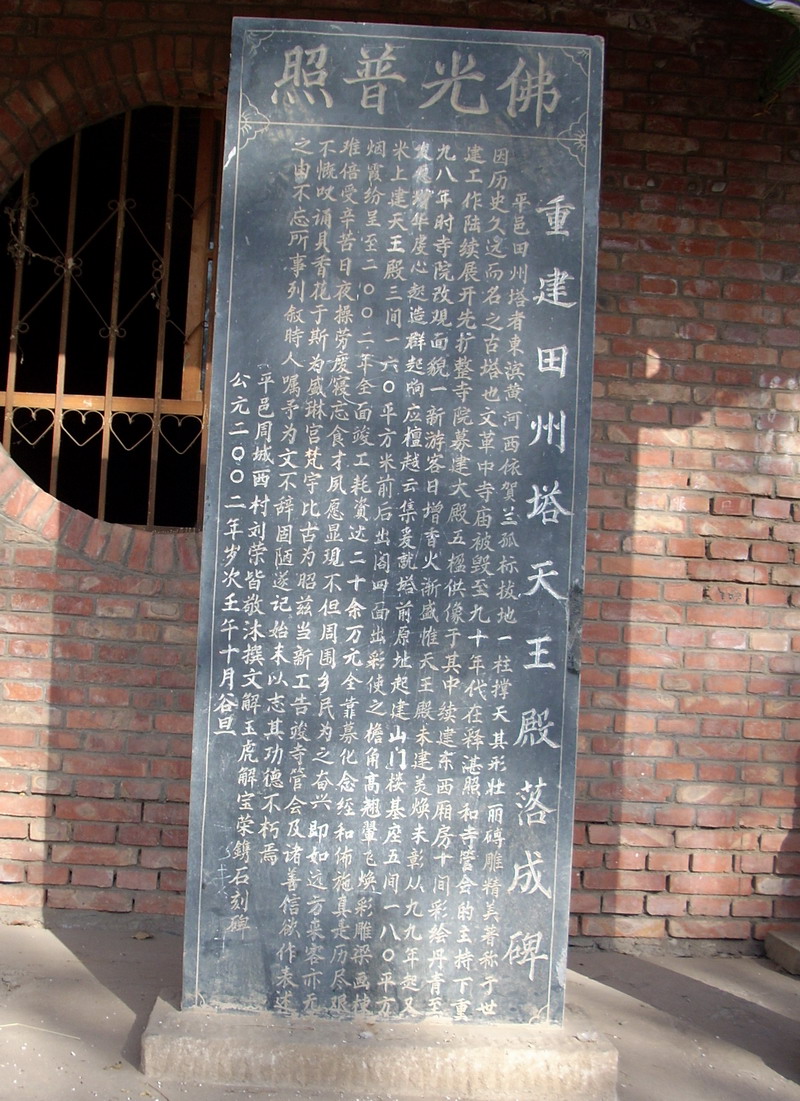 佛光普照
重建田州塔天王殿落成碑
平邑田州塔者東滨黄河西依賀兰孤标拔地一柱撑天其形壮丽砖雕精美著称于世
因历史久远而名之古塔也文革中寺庙被毁至九十年代在释湛照和寺管会的主持下重
建工作陆续展开先扩整寺院募建大殿五楹供像于其中续建东西厢房十间彩绘丹青至
九八年时寺院改观面貌一新游客日增香火渐盛惟天王殿未建美焕未彰从九九年起又
华虔心起造群起响应檀越云集爰就塔前原址起建山门楼基座五间一八〇平方
米上建天王殿三间一六〇平方米前后出阁四面出彩使之檐角高翘翬飞焕彩雕梁画棟
烟霞纷呈至二〇〇二年全面竣工耗資达二十余万元全靠募化念经和佈施真是历尽艰
难倍受辛苦日夜操劳废寝忘食才夙愿显現不但周围乡民为之奋兴即如远方来客亦无
不慨叹诵貝香花于斯为盛琳宫梵宇比古为昭兹当新工告竣寺管会及诸善信欲作表述
之由不忘所事列叙時人嘱予为文不辞固陋遂记始末以志其功德不朽焉
平邑周城西村刘荣皆敬沐撰文解玉虎解宝荣鐫石刻碑
公元二〇〇二年岁次壬午十月谷旦